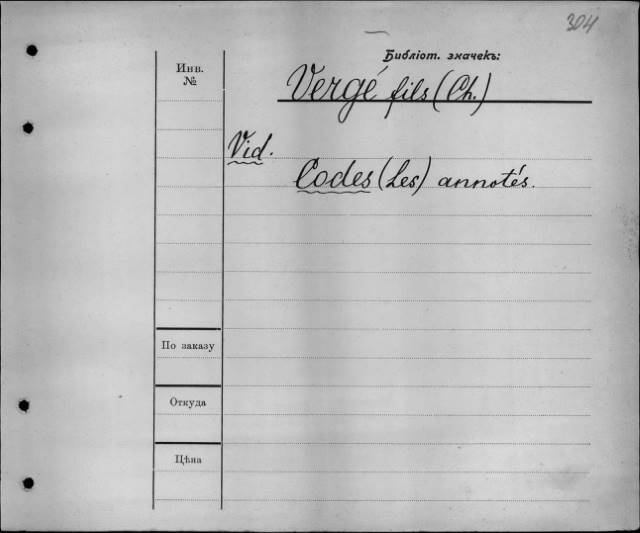 304
Библіот. значекъ:
Инв.
№
Vergé fils (Ch.)
Vid.
Codes (Les) annotés.
По заказу
Откуда
Цѣна